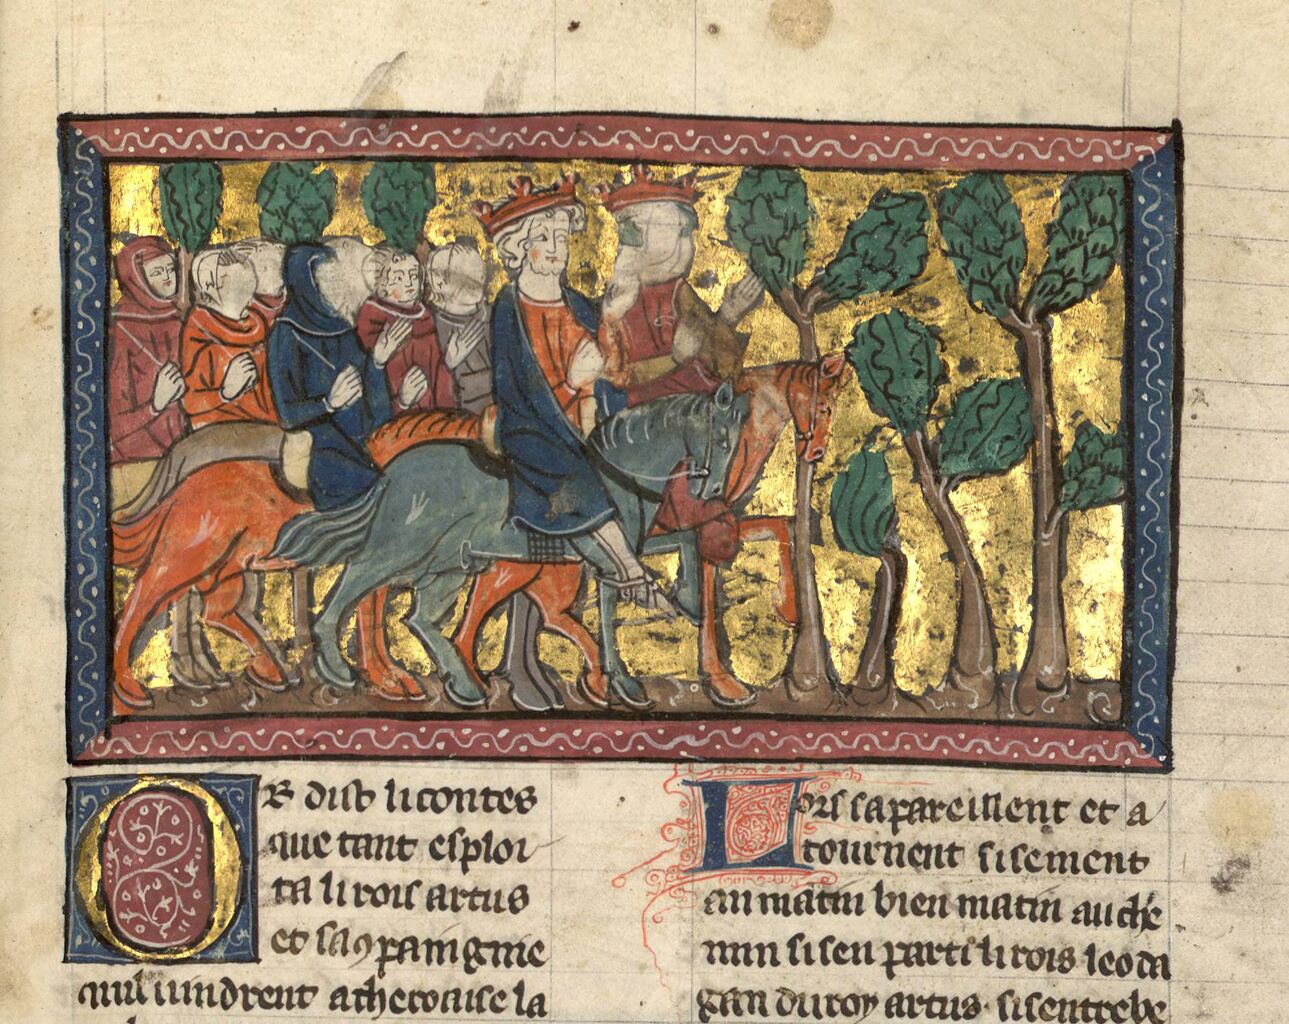 OR dist li contes
que tant esploi
ta li rois artus
et sa 9paingnie
quil uindrent a therouise la
Lors sapareillent et a
tournent si sement
au matin bien matin au che
min si sen parti li rois leoda
gan du roy artus. si sentrebe